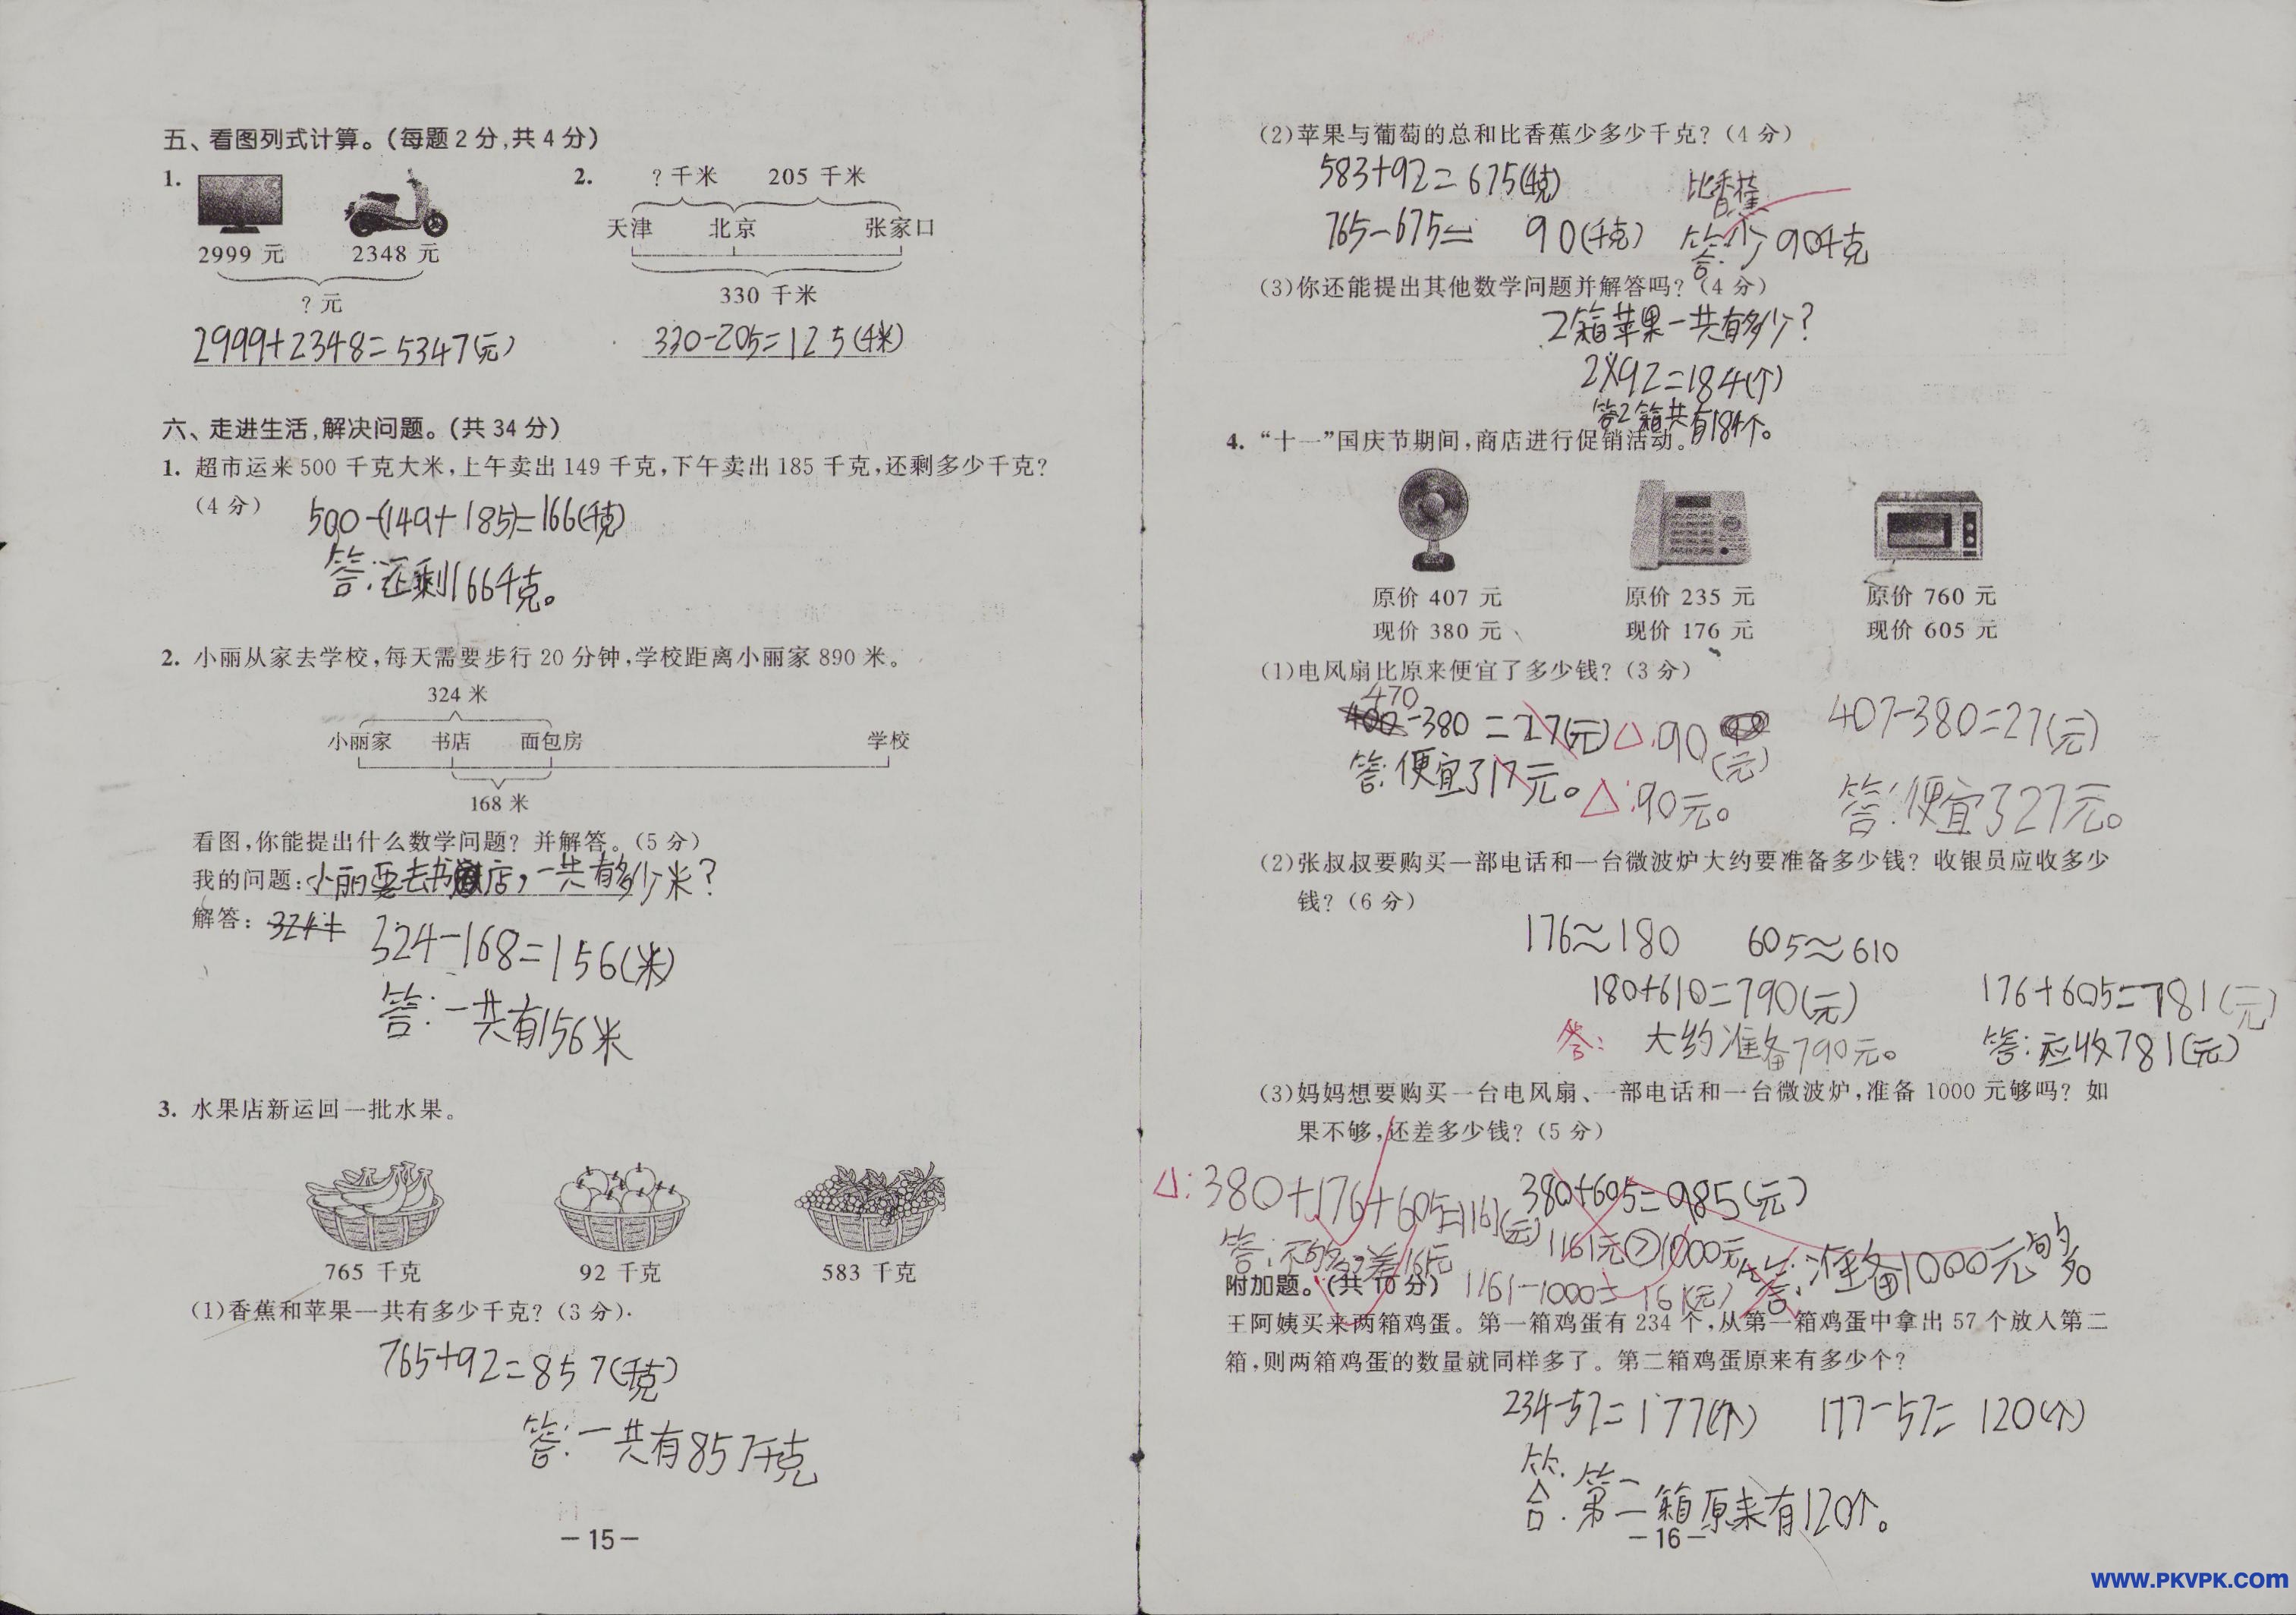 五、看图列式计算。(每题2分,共4分)
1.
2999 元
2348 元
? 元
2999+2348=5347(元)
2.
? 千米
205 千米
天津
北京
张家口
330 千米
330-205=125(千米)
六、走进生活,解决问题。(共34分)
1. 超市运来500千克大米,上午卖出149千克,下午卖出185千克,还剩多少千克?
(4分)
500-(149+185)=166(千克)
答:还剩166千克。
2. 小丽从家去学校,每天需要步行20分钟,学校距离小丽家890米。
324 米
小丽家 书店 面包房 学校
168 米
看图,你能提出什么数学问题? 并解答。(5分)
我的问题:小丽要去书店,一共有多少米?
解答: 324+ 324-168=156(米)
答:一共有156米
3. 水果店新运回一批水果。
765 千克 92 千克 583 千克
(1)香蕉和苹果一共有多少千克? (3分)
765+92=857(千克)
答:一共有857千克
—15—
(2)苹果与葡萄的总和比香蕉少多少千克? (4分)
583+92=675(千克)
765-675= 90(千克)
比香蕉
答:少90千克
(3)你还能提出其他数学问题并解答吗? (4分)
2箱苹果一共有多少?
2×92=184(个)
答2箱共有184个。
4. “十一”国庆节期间,商店进行促销活动。
原价 407 元 原价 235 元 原价 760 元
现价 380 元 现价 176 元 现价 605 元
(1)电风扇比原来便宜了多少钱? (3分)
470
400-380=27(元) △:90(元)
答:便宜了17元。 △:90元。
407-380=27(元)
答:便宜了27元。
(2)张叔叔要购买一部电话和一台微波炉大约要准备多少钱? 收银员应收多少
钱? (6分)
176≈180 605≈610
180+610=790(元)
答: 大约准备790元。
176+605=781(元)
答:应收781(元)
(3)妈妈想要购买一台电风扇、一部电话和一台微波炉,准备1000元够吗? 如
果不够,还差多少钱? (5分)
△:380+176+605=1161(元)
380+605=985(元)
1161元>1000元
答:不够,差161元
1161-1000=161(元)
答:准备1000元够
附加题。(共10分)
王阿姨买来两箱鸡蛋。第一箱鸡蛋有234个,从第一箱鸡蛋中拿出57个放入第二
箱,则两箱鸡蛋的数量就同样多了。第二箱鸡蛋原来有多少个?
234-57=177(个) 177-57=120(个)
答:第二箱原来有120个。
—16—
www.PKVPK.com